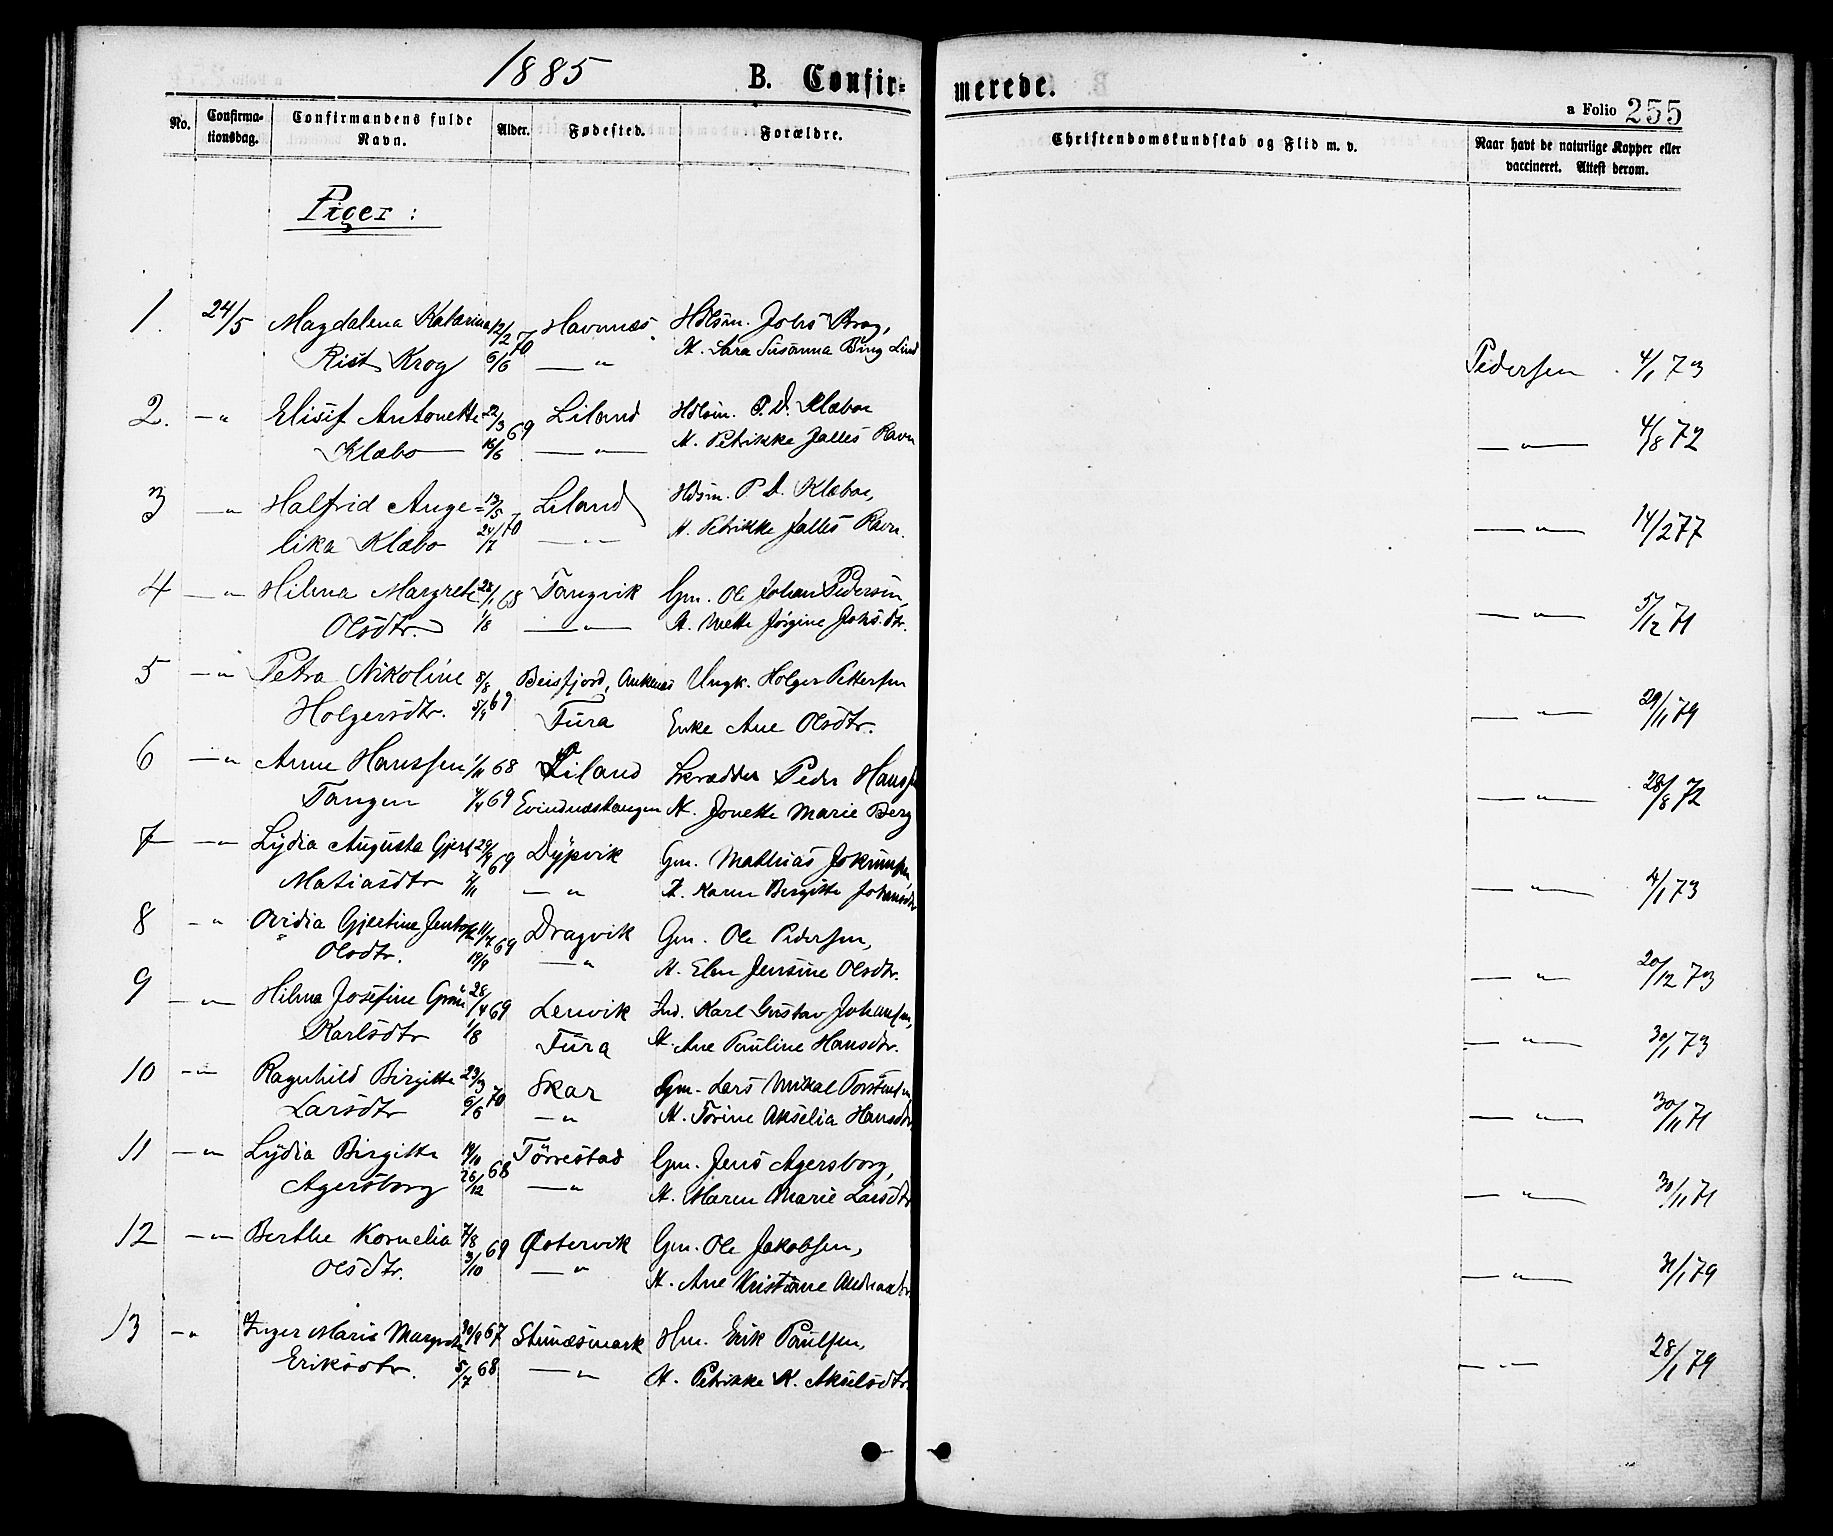 1885 B. Confir=
merede. a Folio 255
No. Confirma-tionsdag. Confirmandens fulde Navn. Alder. Fødested. Forældre. Christendomskundskab og Flid m. v. Naar havt de naturlige Kopper eller vaccineret. Attest derom.
Piger:
1. 24/5 Magdalena Katarina 12/2 70 Havnnæs Hdlsm. Johs Krog,
Rist Krog 6/6 —"— H. Sara Susanna Bing Lind Pedersen 4/1 73
2. —" Elisif Antonette 22/3 69 Liland Hdlsm. P. D. Klæboe
Klæbo 16/6 —"— H. Petrikke Jalles Ravn —"— 4/8 72
3 —" Halfrid Ange= 13/5 70 Liland Hdsm. P D. Klæboe,
lika Klæbo 24/7 —"— H. Petrikke Jalles Ravn. —"— 14/2 77
4 —" Hilma Margrete 28/1 68 Tangvik Gm. Ole Johan Pedersen,
Olsdtr. 1/8 —"— H. Mette Jørgine Johs.dtr. —"— 5/12 71
5 —" Petra Nikoline 8/8 69 Beisfjord, Ankenæs Ungk. Holger Pettersen
Holgersdtr. 5/9 Fura Enke Ane Olsdtr. —"— 29/11 79
6 —" Anne Hanssen 1/11 68 Liland Skrædder Peder Hanss
Tangen 4/4 69 Evindnæstangen H. Jonette Marie Berg —"— 28/8 72
7 —" Lydia Augusta Gjert 29/9 69 Dypvik Gm. Mathias Jokumsen,
Matiasdtr 7/11 —" H. Karen Birgitte Johansdtr —"— 4/1 73
8 —" Ovidia Gjertine Jentofte 11/7 69 Dragvik Gm. Ole Pedersen,
Olsdtr. 19/9 —" H. Elen Jensine Olsdtr. —"— 20/12 73
9 —" Hilma Josefine 28/4 69 Lenvik Ind. Karl Gustav Johansen,
Karlsdtr 1/8 Fura H. Ane Pauline Hansdtr. —"— 30/1 73
10 —" Ragnhild Birgitte 23/3 70 Skar Gm. Lars Mikal Torstensen
Larsdtr 6/6 —" H. Torine Akselia Hansdtr —"— 30/11 71
11 —" Lydia Birgitte 19/10 68 Tørrestad Gm. Jens Agersborg,
Agersborg 26/12 —" H. Maren Marie Larsdtr —"— 30/11 71
12 —" Berthe Kornelia 7/8 69 Østervik Gm. Ole Jakobsen,
Olsdtr. 3/10 —" H. Ane Kristiane —"— 31/1 79
13 —" Inger Marie Margrete 30/9 67 Stunæsmark Hm. Erik Paulsen,
Eriksdtr. 5/7 68 —" H. Petrikke K. Akselsdtr. —"— 28/1 79